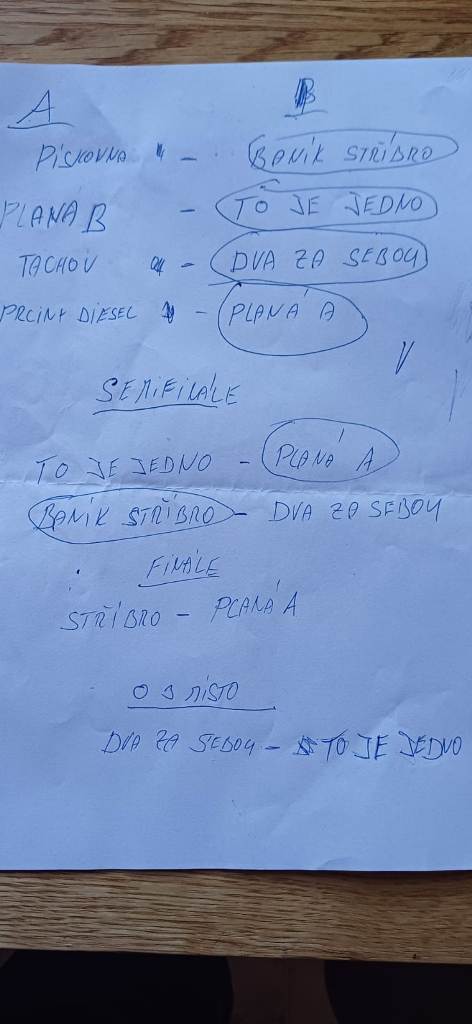 A B
PÍSKOVNA - BANÍK STŘÍBRO
PLANÁ B - TO JE JEDNO
TACHOV - DVA ZA SEBOU
PRCINY DIESEL - PLANÁ A
SEMIFINÁLE
TO JE JEDNO - PLANÁ A
BANÍK STŘÍBRO - DVA ZA SEBOU
FINÁLE
STŘÍBRO - PLANÁ A
O 3 MÍSTO
DVA ZA SEBOU - TO JE JEDNO